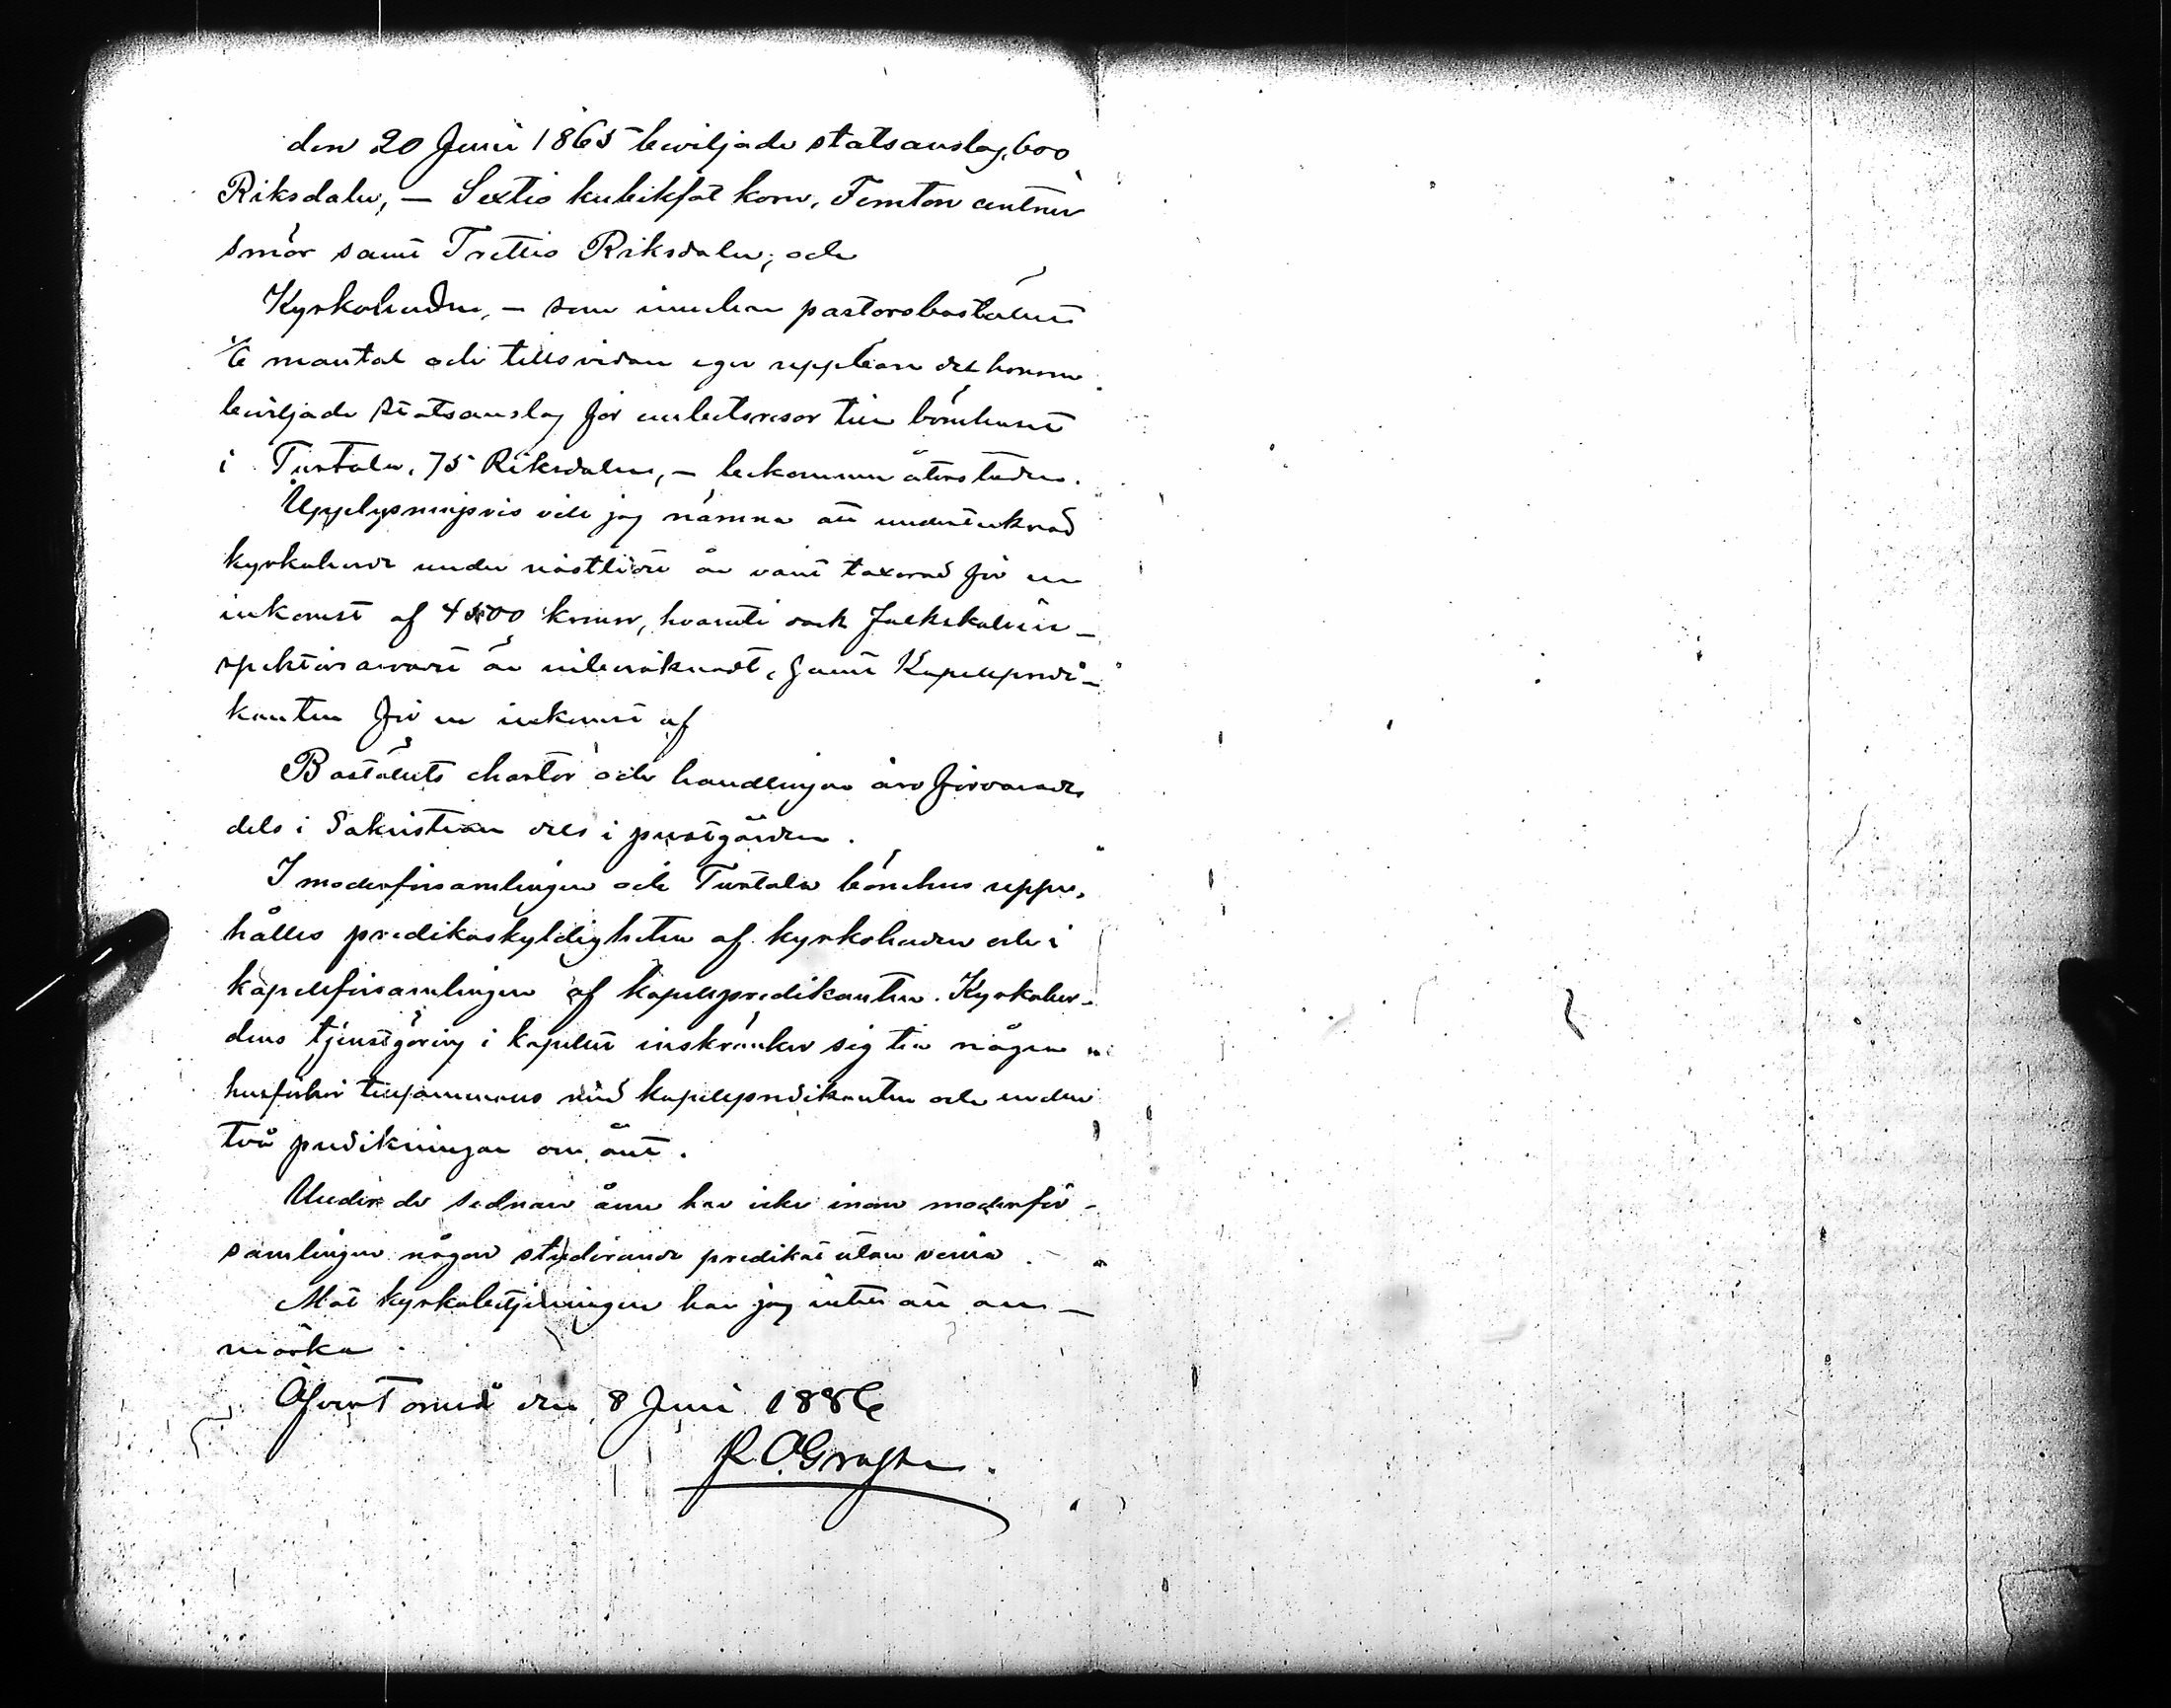 den 20 Juni 1865 beviljade statsanslag, 600
Riksdaler, — Sextio kubikfot korn, Femton centner
smör samt Trettio Riksdaler; och
Kyrkoherden, — som innehar pastorsbostället
mantal och tillsvidare eger uppbära det honom
beviljade statsanslag för embetsresor till bönehuset
i Turtola, 75 Riksdaler, — bekommer återstoden.
Upplysningsvis vill jag nämna att undertecknad
kyrkoherde under nästlidne år varit taxerad för en
inkomst af 4500 kronor, hvaruti ock Folkskolein-
spektörsarvodet är inberäknadt, samt Kapellpredi-
kanten för en inkomst af
Boställets chartor och handlingar äro förvarade
dels i Sakristian dels i prestgården.
I moderförsamlingen och Turtola bönehus uppe-
hålles predikoskyldigheten af kyrkoherden och i
kapellförsamlingen af kapellpredikanten. Kyrkoher-
dens tjenstgöring i kapellet inskränker sig till några
husförhör tillsammans med kapellpredikanten och en eller
två predikningar om året.
Under de sednare åren har icke inom moderför-
samlingen någon studerande predikat utan venia.
Mot kyrkobetjeningen har jag intet att an-
märka.
ÖfverTorneå den 8 Juni 1886